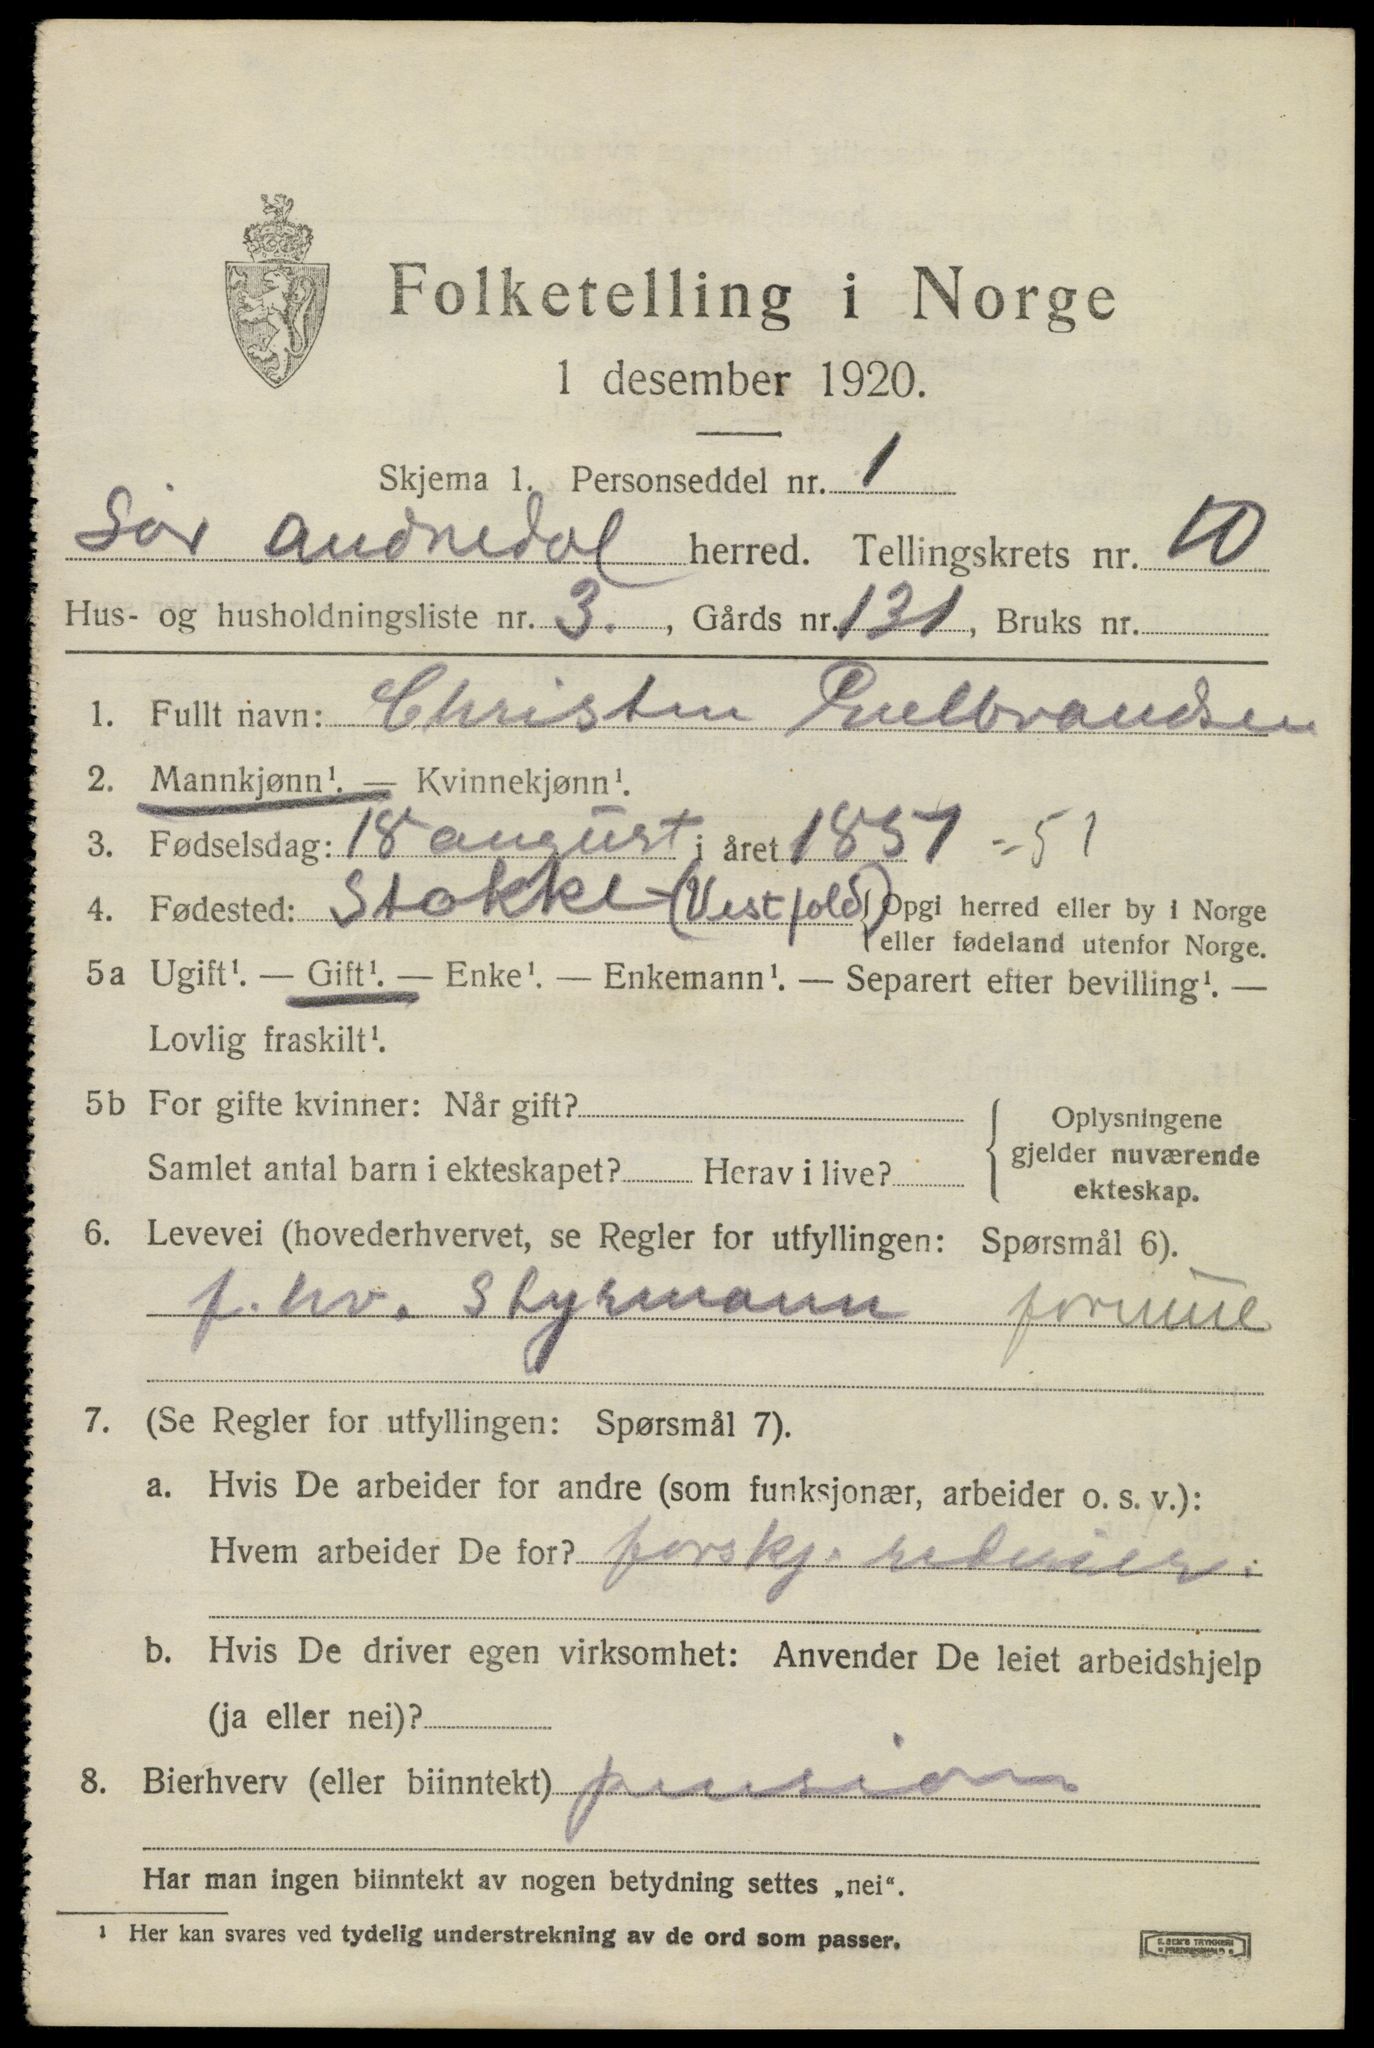 Folketelling i Norge
1 desember 1920.
Skjema 1. Personseddel nr. 1
Sør Audnedal herred. Tellingskrets nr. 10
Hus- og husholdningsliste nr. 3. , Gårds nr. 131 , Bruks nr.
1. Fullt navn: Christen
2. Mannkjønn¹. — Kvinnekjønn¹.
3. Fødselsdag: 18 august i året 1851 = 51
4. Fødested: Stokke (Vestfold) Opgi herred eller by i Norge
eller fødeland utenfor Norge.
5a Ugift¹. — Gift¹. — Enke¹. — Enkemann¹. — Separert efter bevilling¹. —
Lovlig fraskilt¹.
5b For gifte kvinner: Når gift?
Samlet antal barn i ekteskapet? Herav i live?
Oplysningene
gjelder nuværende
ekteskap.
6. Levevei (hovederhvervet, se Regler for utfyllingen: Spørsmål 6).
f. hv. Styrmann formue
7. (Se Regler for utfyllingen: Spørsmål 7).
a. Hvis De arbeider for andre (som funksjonær, arbeider o. s. v.):
Hvem arbeider De for? forskj. rederier.
b. Hvis De driver egen virksomhet: Anvender De leiet arbeidshjelp
(ja eller nei)?
8. Bierhverv (eller biinntekt) pension
Har man ingen biinntekt av nogen betydning settes „nei“.
¹ Her kan svares ved tydelig understrekning av de ord som passer.